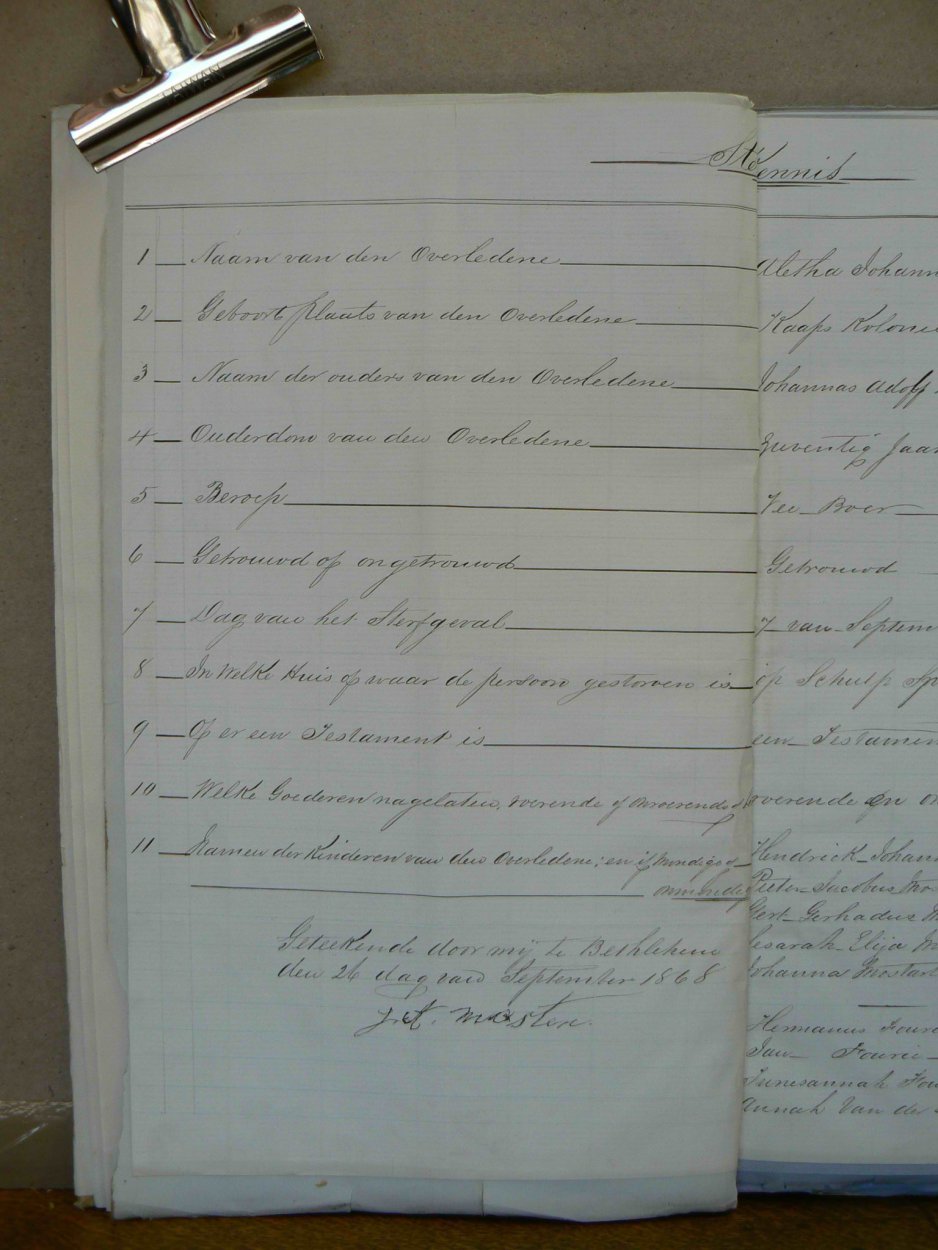 TAIWAN
Kennis
1 Naam van den Overledene Aletha Johann
2 Geboort plaats van den Overledene Kaaps Kolonie
3 Naam der ouders van den Overledene Johannas Adolf
4 Ouderdom van den Overledene Zeventig Jaar
5 Beroep Vee Boer
6 Getrouwd of ongetrouwd Getrouwd
7 Dag van het Sterfgeval 7 van Septem
8 In Welke Huis of waar de persoon gestorven is op Schulp Sp
9 Of er een Testament is een Testamen
10 Welke Goederen nagelaten, roerende of onroerende roerende en on
11 Namen der Kinderen van den Overledene; en if Hendrick Johann
Pieter Jacobus Mos
Gert Gerhadus M
Cesarah Elija M
Johanna Mostart
Geteekende door mij te Bethlehem
den 26 dag van September 1868
Hermanus Fourie
Jan Fourie
Fou
Annah Van der